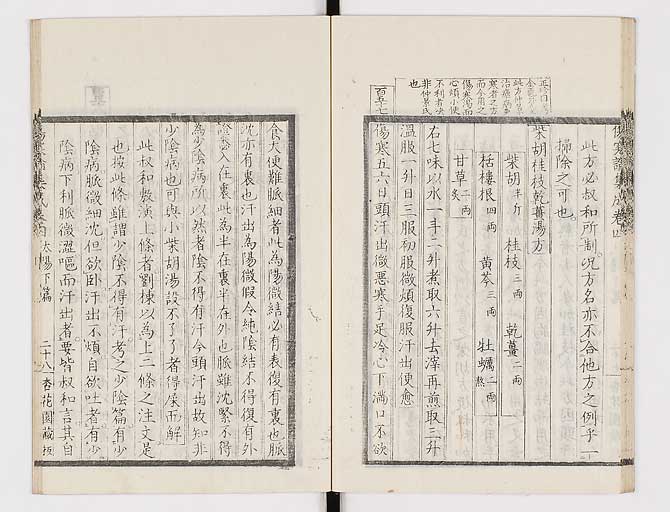 傷寒論集成卷四
此方必叔和所制況方名亦不合他方之例乎一
掃除之可也
柴胡桂枝乾薑湯方
柴胡半斤 桂枝三兩 乾薑二兩
栝樓根四兩 黃芩三兩 牡蠣二兩熬
甘草二兩炙
右七味以水一斗二升煮取六升去滓再煎取三升
溫服一升日三服初服微煩復服汗出便愈
傷寒五六日頭汗出微惡寒手足冷心下滿口不欲
食大便難脈細者此為陽微結必有表復有裏也脈
沈亦有裏也汗出為陽微假令純陰結不得復有外
證悉入在裏此為半在裏半在外也脈雖沈緊不得
為少陰病所以然者陰不得有汗今頭汗出故知非
少陰病也可與小柴胡湯設不了了者得屎而解
此叔和敷演上條者劉棟以為上二條之注文是
也按此條雖謂少陰不得有汗考之少陰篇有少
陰病脈微細沈但欲臥汗出不煩自欲吐者有少
陰病下利脈微澀嘔而汗出者要皆叔和言其自
傷寒論集成卷四 太陽下篇 二十八 杏花園藏板